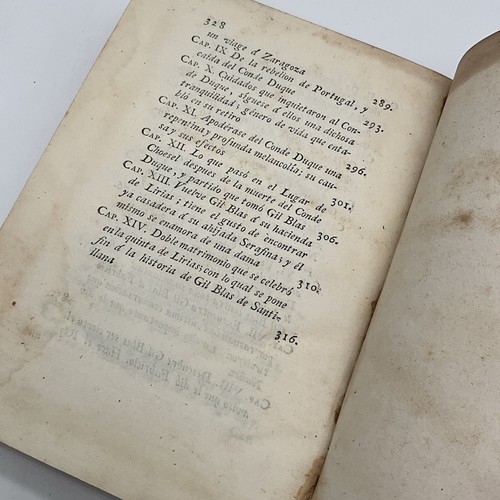 328
un viage á Zaragoza
CAP. IX De la rebelion de Portugal, y
caida del Conde Duque 289.
CAP. X. Cuidados que inquietaron al Con-
de Duque, síguese á ellos una dichosa
tranquilidad; género de vida que enta-
bló en su retiro 293.
CAP. XI. Apodérase del Conde Duque una
repentina y profunda melancolía; su cau-
sa y sus efectos 296.
CAP. XII. Lo que pasó en el Lugar de
Choesel despues de la muerte del Conde
Duque, y partido que tomó Gil Blas 301.
CAP. XIII. Vuelve Gil Blas á su hacienda
de Lirias; tiene el gusto de encontrar 306.
ya casadera á su ahijada Serafina; y él
mismo se enamora de una dama
CAP. XIV. Doble matrimonio que se celebró 310.
en la quinta de Lirias; con lo qual se pone
fin á la historia de Gil Blas de Santi-
llana 316.